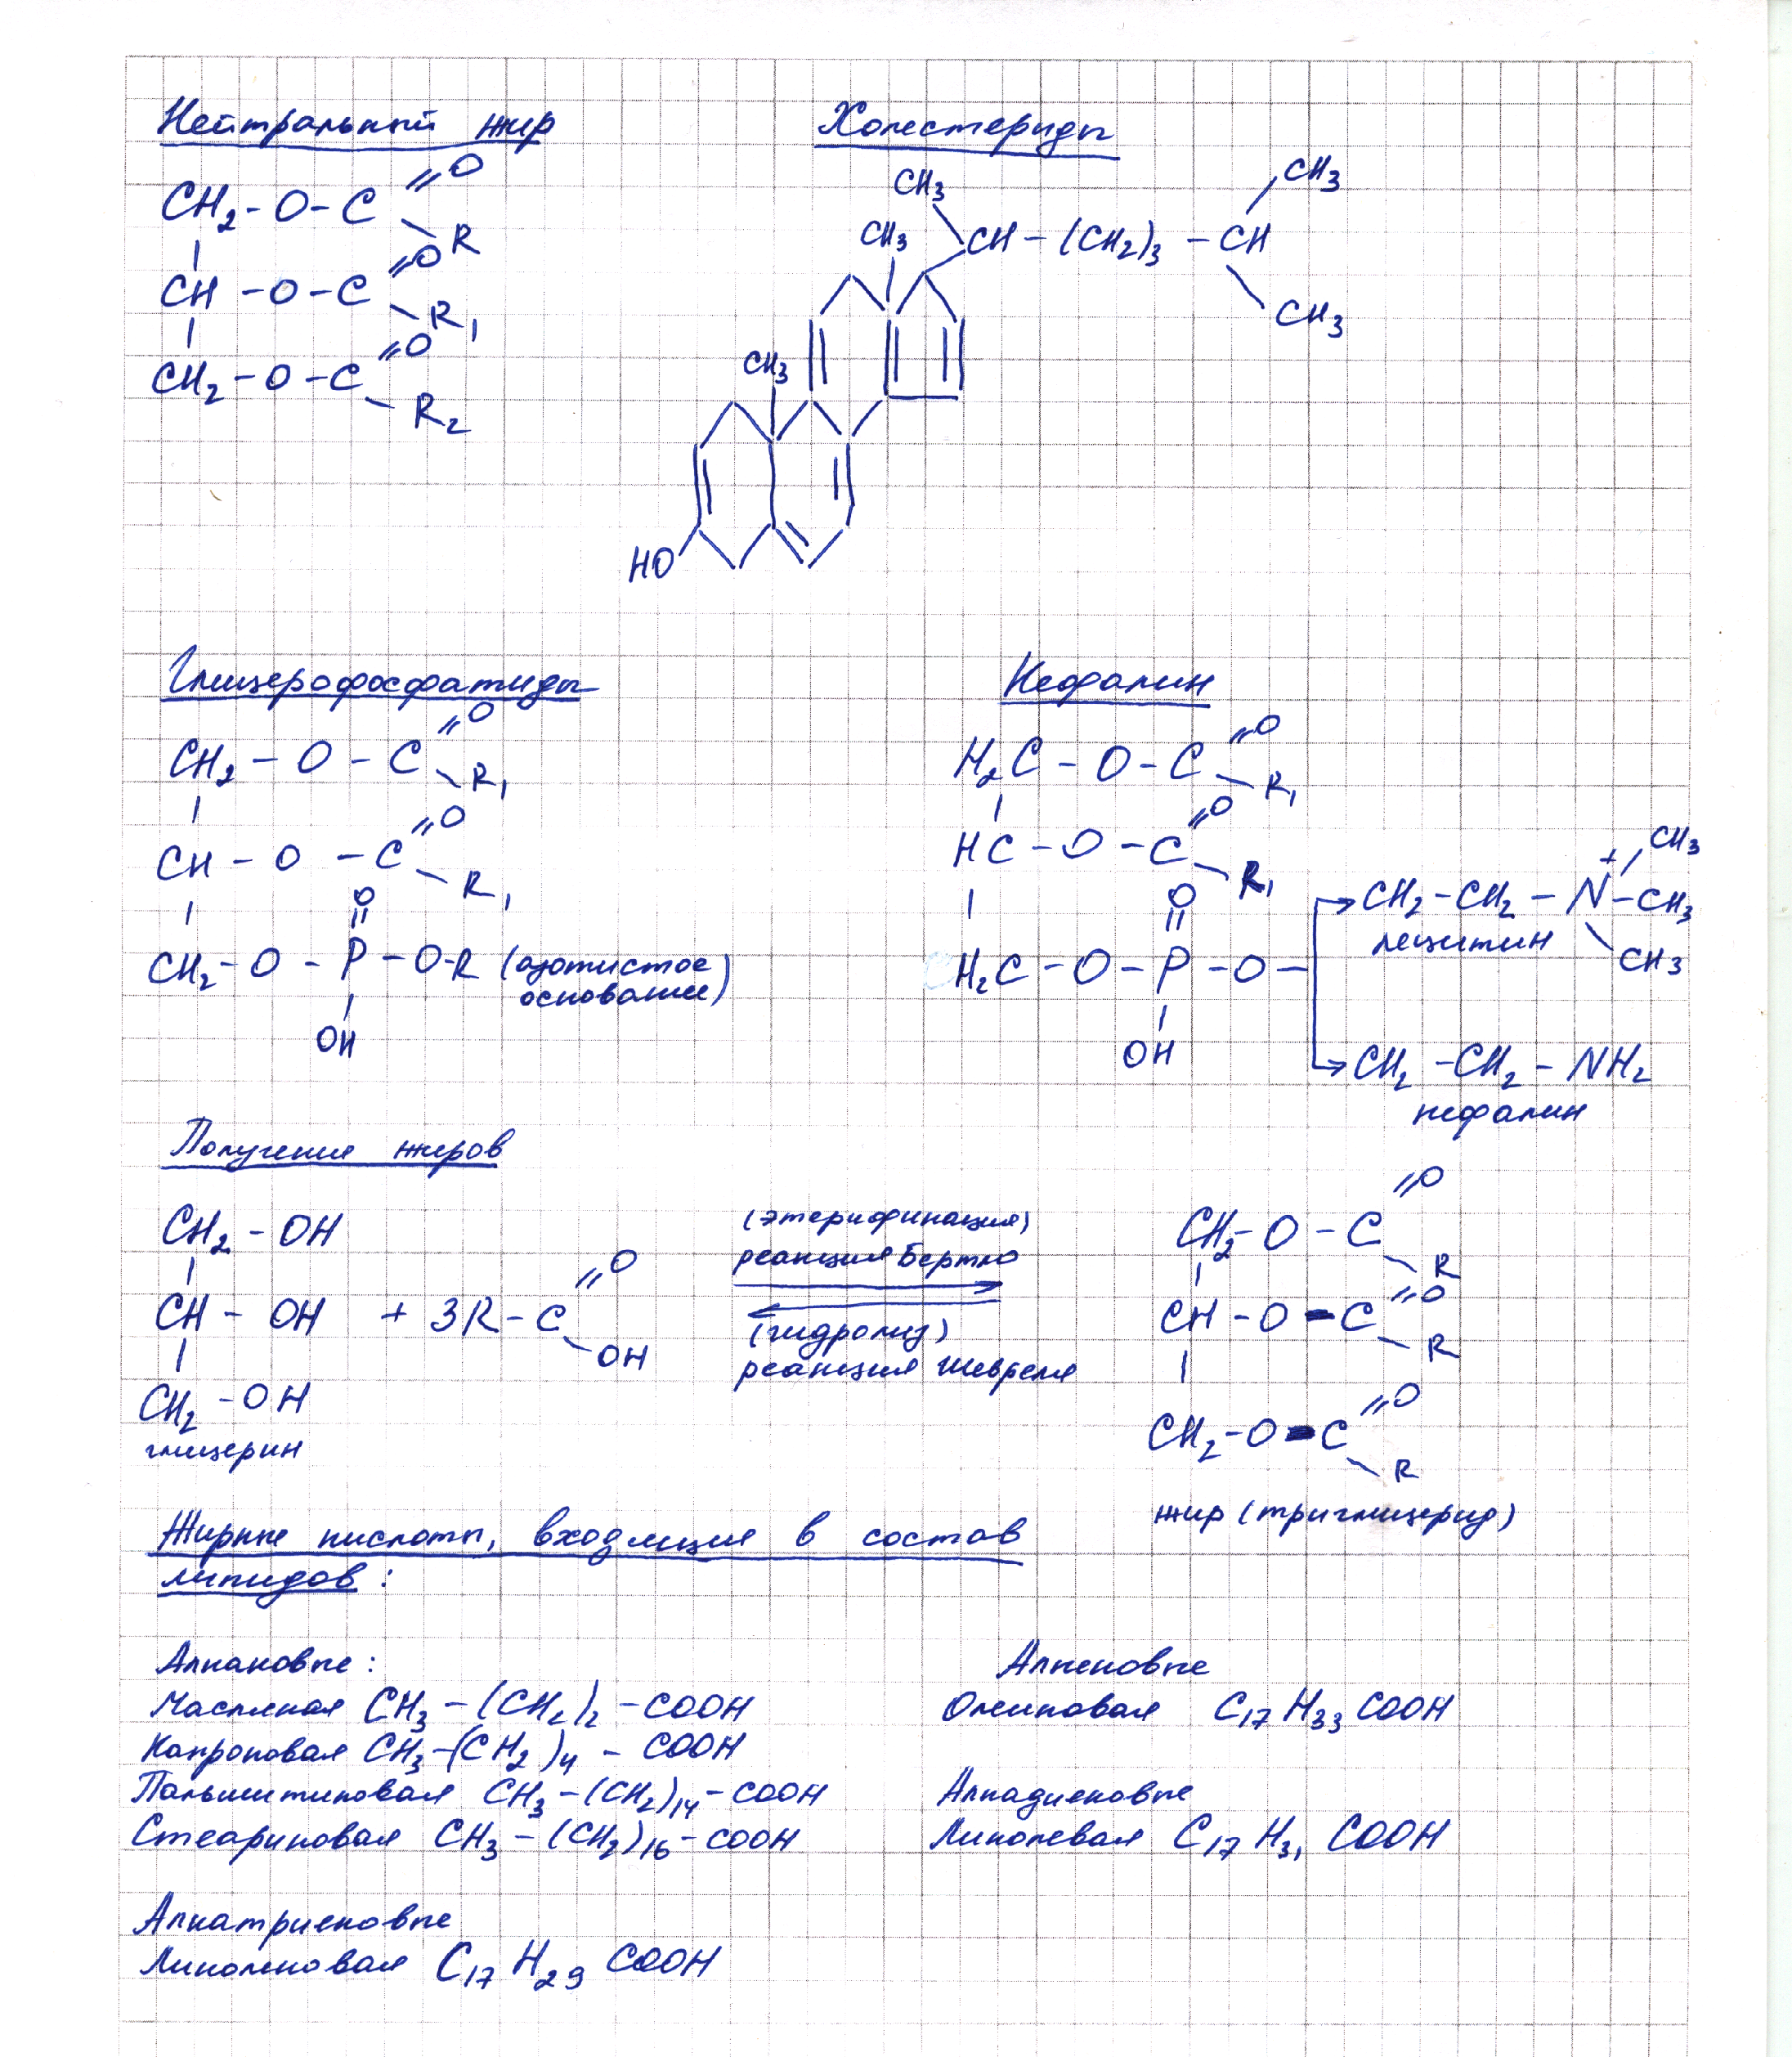 Нейтральный жир
CH2 - O - C =O
R
CH - O - C =O
R1
CH2 - O - C =O
R2
Холестериды
CH3
CH3
CH3 CH - (CH2)3 - CH
CH3
CH3
HO
Глицерофосфатиды
CH2 - O - C =O
R1
CH - O - C =O
R1
O
CH2 - O - P - O-R (азотистое
основание)
OH
Кефалин
H2C - O - C =O
R1
HC - O - C =O
R1
O
H2C - O - P - O -
OH
+ CH3
CH2 - CH2 - N - CH3
лецитин
CH3
CH2 - CH2 - NH2
кефалин
Получение жиров
CH2 - OH
CH - OH + 3R - C =O
OH
CH2 - OH
глицерин
(этерификация)
реакция Бертло
(гидролиз)
реакция Шевреля
CH2 - O - C =O
R
CH - O - C =O
R
CH2 - O - C =O
R
жир (триглицерид)
Жирные кислоты, входящие в состав
липидов:
Алкановые:
Масляная CH3 - (CH2)2 - COOH
Капроновая CH3 - (CH2)4 - COOH
Пальмитиновая CH3 - (CH2)14 - COOH
Стеариновая CH3 - (CH2)16 - COOH
Алкеновые
Олеиновая C17H33COOH
Алкадиеновые
Линолевая C17H31COOH
Алкатриеновые
Линоленовая C17H29COOH